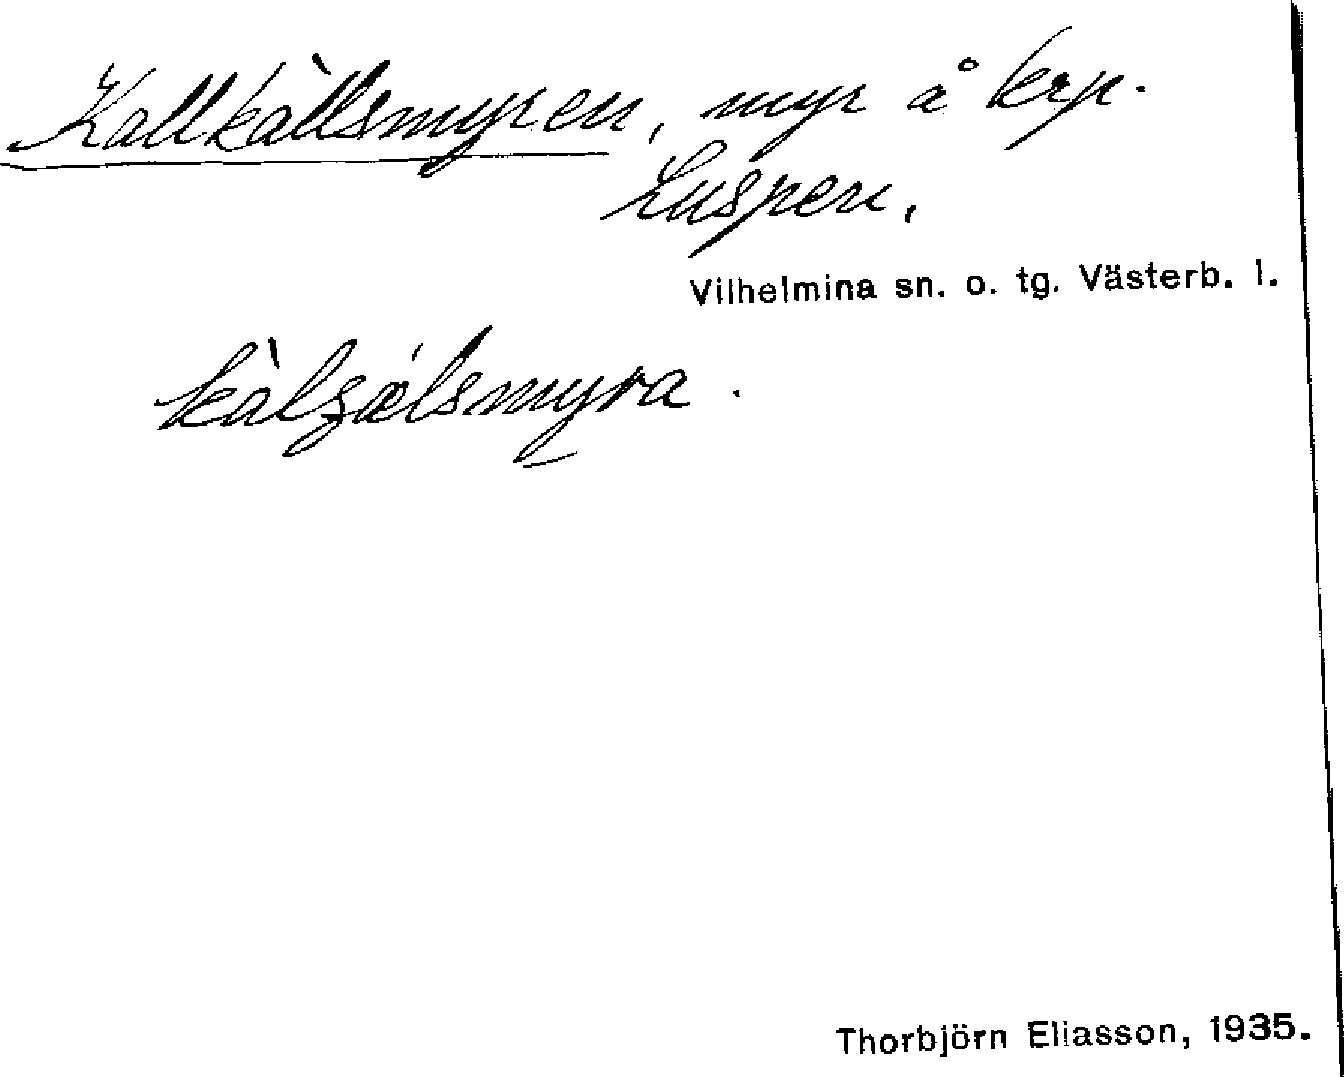 Kallkällsmyren, myr å krp.
Luspen.
Vilhelmina sn. o. tg. Västerb. l.
kàlʒælsmyra.
Thorbjörn Eliasson, 1935.